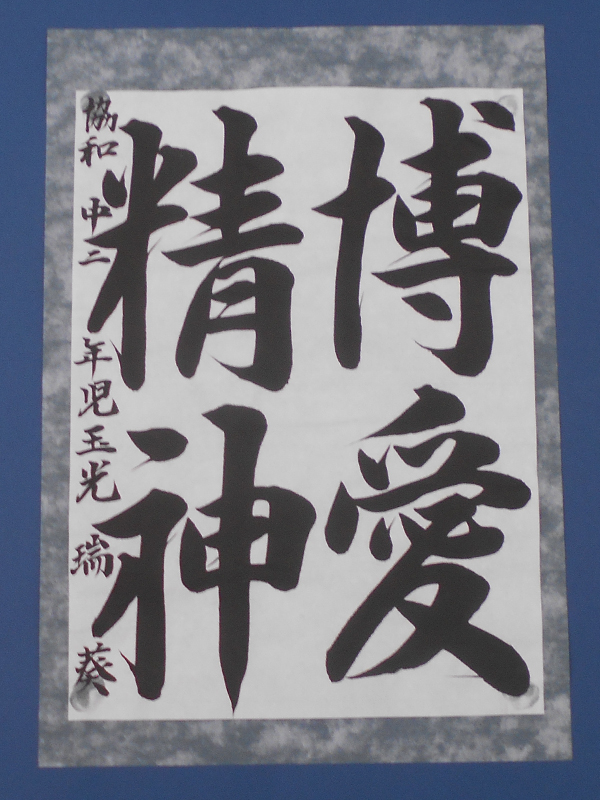 博愛
精神
協和中二年児玉光瑞葵